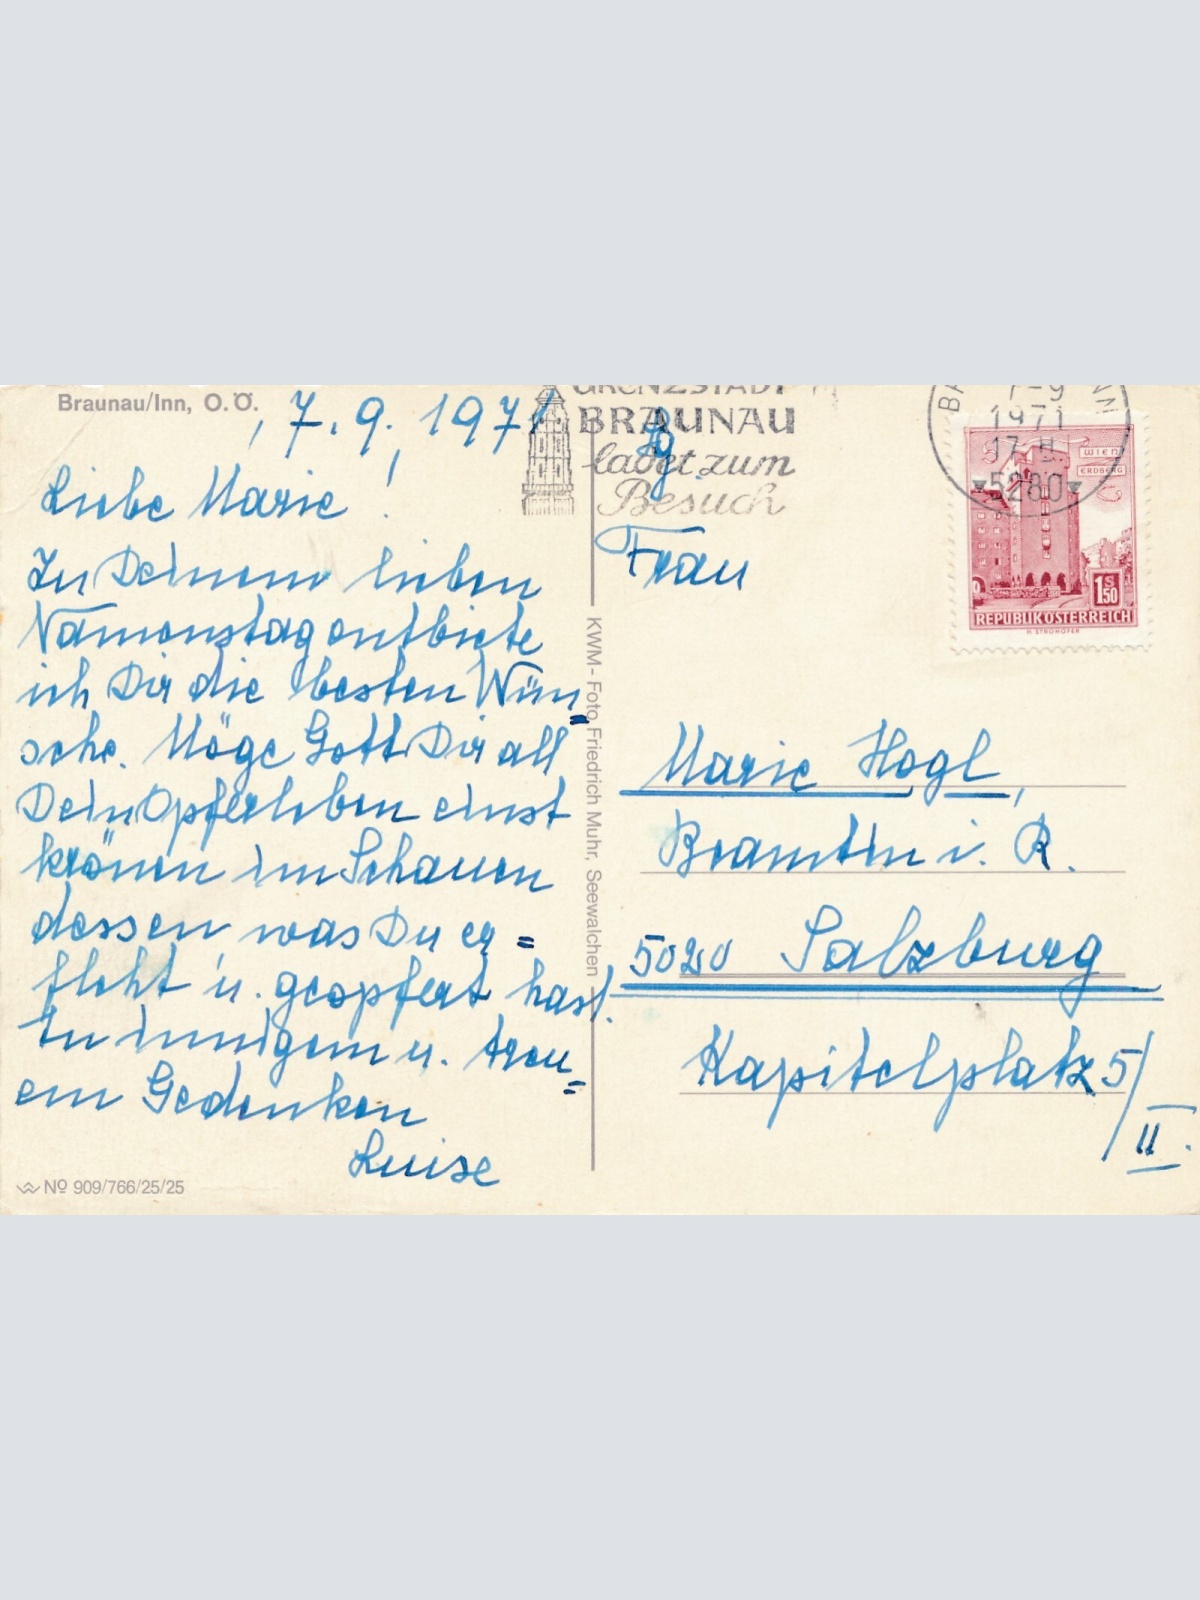 Braunau/Inn, O.Ö.
, 7.9.1971
Liebe Marie !
Zu Deinem lieben
Namenstag entbiete
ich Dir die besten Wün-
sche. Möge Gott Dir all
Dein Opferleben einst
krönen im Schauen
dessen, was Du er=
fleht u. geopfert hast.
In innigem u. treu=
em Gedenken
Luise
No 909/766/25/25
KWM - Foto Friedrich Muhr, Seewalchen
GRENZSTADT
BRAUNAU
ladet zum
Besuch
1971
17 H.
5280
WIEN
ERDBERG
1 S 50
REPUBLIK ÖSTERREICH
H. STROHOFER
Frau
Marie Hogl,
Beamtin i. R.
5020 Salzburg
Kapitelplatz 5/
II.